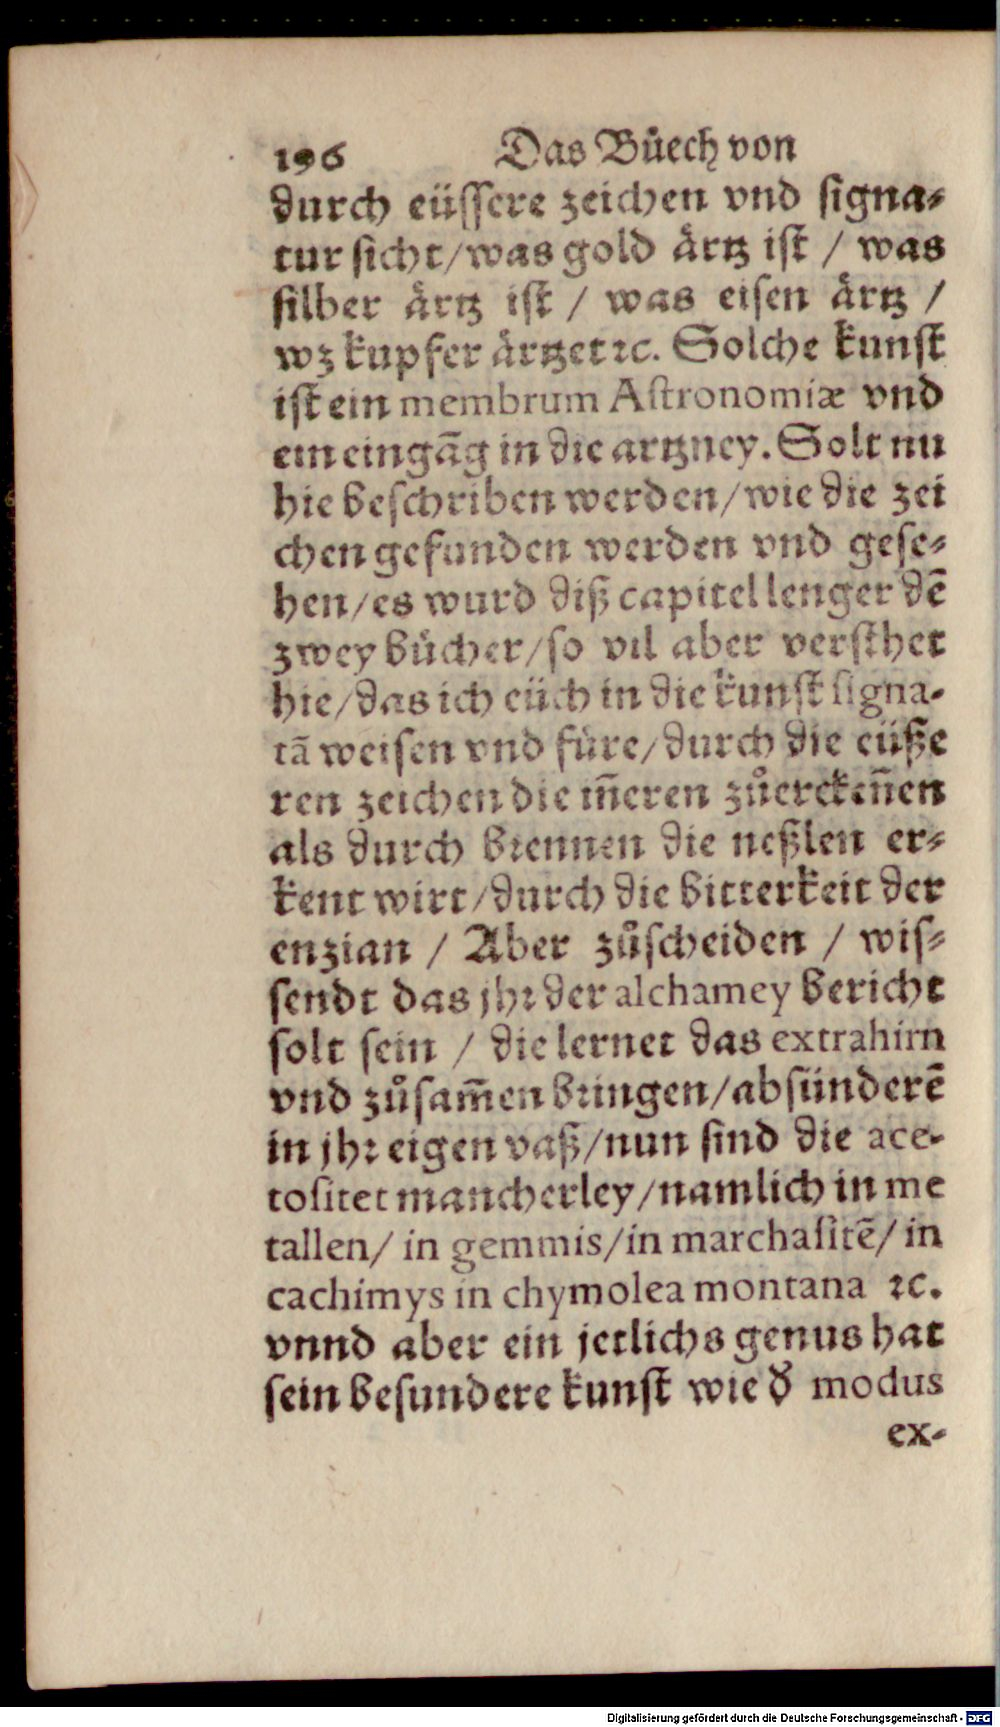 196 Das Buͤech von
durch eüssere zeichen vnd signa⸗
tur sicht/was gold aͤrtz ist / was
silber aͤrtz ist / was eisen aͤrtz /
wz kupfer aͤrtzet ꝛc. Solche kunst
ist ein membrum Astronomiæ vnd
ein eingãg in die artzney. Solt nu
hie beschriben werden/wie die zei
chen gefunden werden vnd gese⸗
hen/es wurd diß capitel lenger dẽ
zwey buͤcher/so vil aber versthet
hie/das ich eüch in die kunst signa-
tã weisen vnd fuͤre/durch die eüße
ren zeichen die iñeren zůerckeñen
als durch brennen die neßlen er⸗
kent wirt/durch die bitterkeit der
enzian / Aber zůscheiden / wis⸗
sendt das jhr der alchamey bericht
solt sein / die lernet das extrahirn
vnd zůsam̃en bringen/absünderẽ
in jhr eigen vaß/nun sind die ace-
tositet mancherley/namlich in me
tallen/ in gemmis/in marchasitẽ/ in
cachimys in chymolea montana ꝛc.
vnnd aber ein jetlichs genus hat
sein besundere kunst wie d̕ modus
ex-
Digitalisierung gefördert durch die Deutsche Forschungsgemeinschaft - DFG